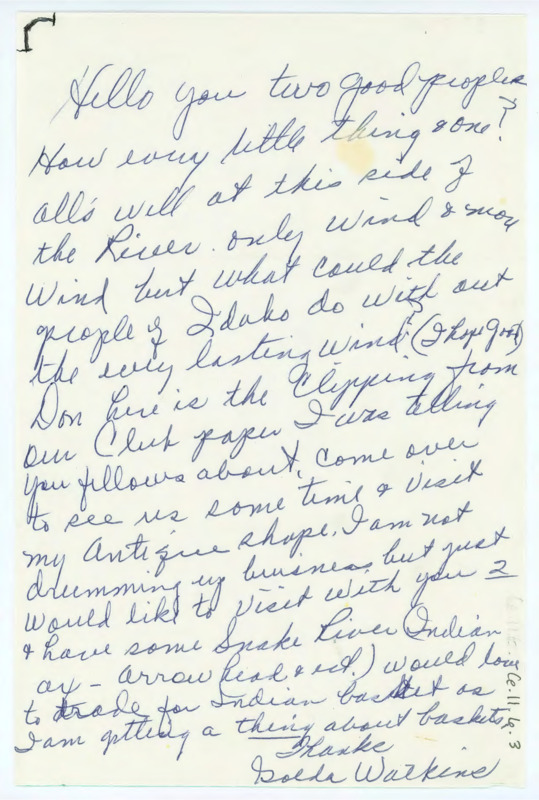 Hello you two good peoples
How every little thing & one?
all's well at this side of
the River. only wind & more
Wind but what could the
people of Idaho do with out
the every lasting wind? (I hope Good)
Don here is the Clipping from
our Club paper I was telling
you fellows about, come over
to see us some time & visit
my Antique shope. I am not
drumming up business, but just
would like to visit with you 2
& have some Snake River (Indian
ax - arrow head & ect.) would love
to trade for Indian basket as
I am getting a thing about baskets,
Thanks
Golda Watkins
6.11.6.3